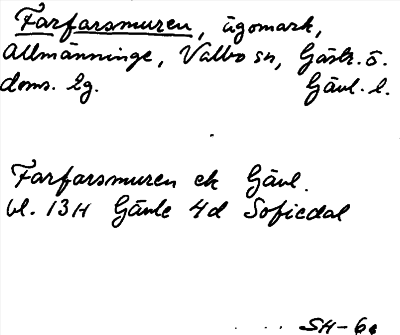 Farfarsmuren, ägomark,
Allmänninge, Valbo sn, Gästr. ö.
doms. lg. Gävl. l.
Farfarsmuren ek Gävl.
bl. 13H Gävle 4d Sofiedal
SH-60